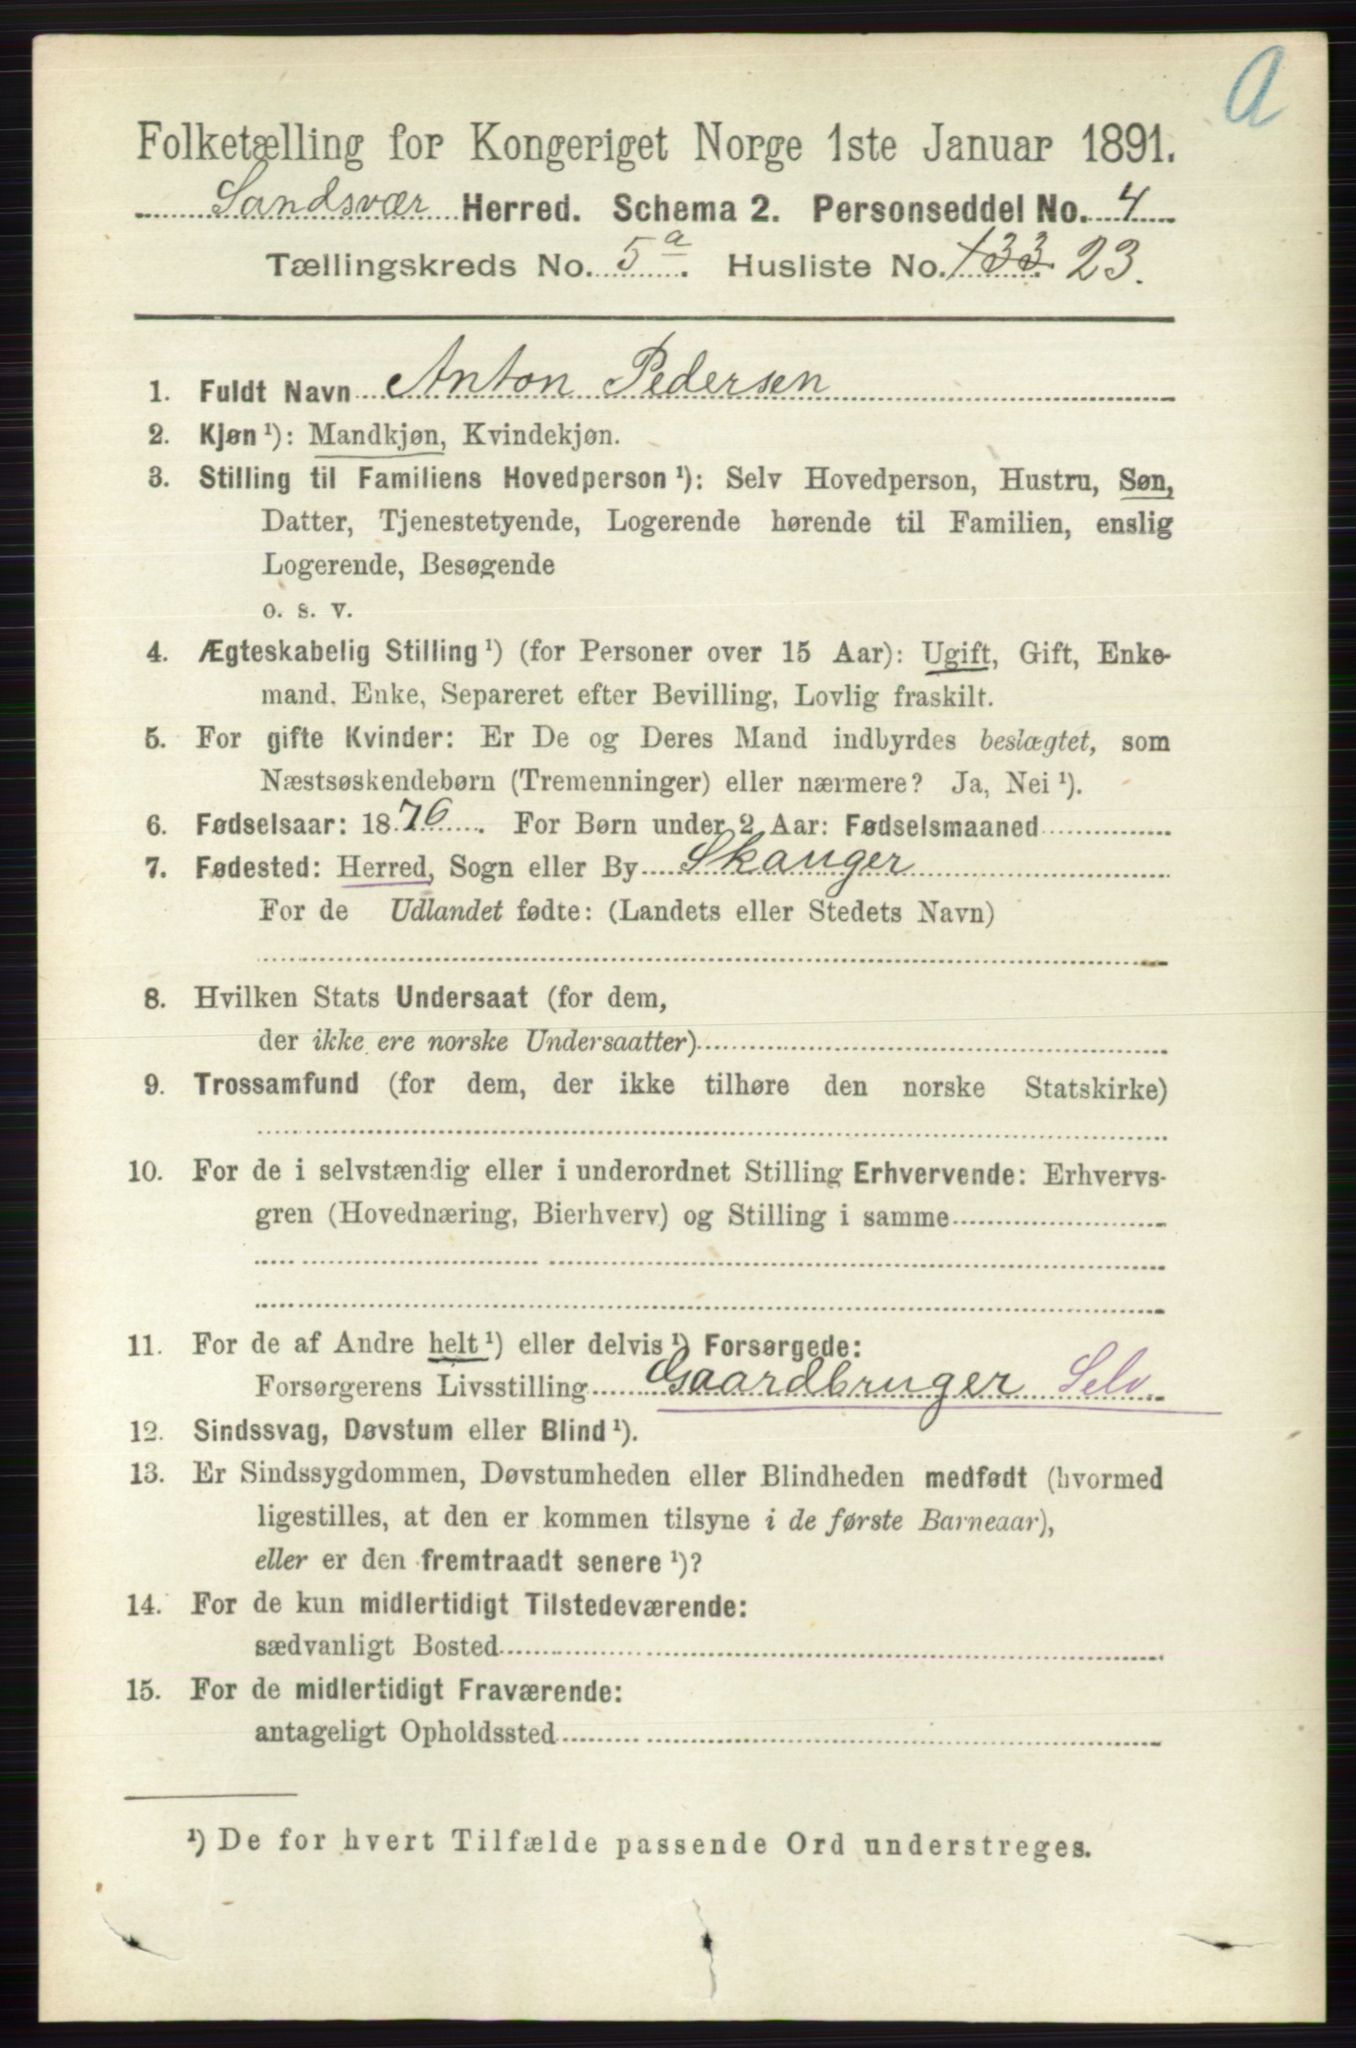 a
Folketælling for Kongeriget Norge 1ste Januar 1891.
Sandsvær Herred. Schema 2. Personseddel No. 4
Tællingskreds No. 5a. Husliste No. 133. 23.
1. Fuldt Navn Anton Pedersen
2. Kjøn ¹): Mandkjøn, Kvindekjøn.
3. Stilling til Familiens Hovedperson ¹): Selv Hovedperson, Hustru, Søn,
Datter, Tjenestetyende, Logerende hørende til Familien, enslig
Logerende, Besøgende
o. s. v.
4. Ægteskabelig Stilling ¹) (for Personer over 15 Aar): Ugift, Gift, Enke-
mand, Enke, Separeret efter Bevilling, Lovlig fraskilt.
5. For gifte Kvinder: Er De og Deres Mand indbyrdes beslægtet, som
Næstsøskendebørn (Tremenninger) eller nærmere? Ja, Nei ¹).
6. Fødselsaar: 1876. For Børn under 2 Aar: Fødselsmaaned
7. Fødested: Herred, Sogn eller By Skauger
For de Udlandet fødte: (Landets eller Stedets Navn)
8. Hvilken Stats Undersaat (for dem,
der ikke ere norske Undersaatter)
9. Trossamfund (for dem, der ikke tilhøre den norske Statskirke)
10. For de i selvstændig eller i underordnet Stilling Erhvervende: Erhvervs-
gren (Hovednæring, Bierhverv) og Stilling i samme
11. For de af Andre helt ¹) eller delvis ¹) Forsørgede:
Forsørgerens Livsstilling Gaardbruger Selv.
12. Sindssvag, Døvstum eller Blind ¹).
13. Er Sindssygdommen, Døvstumheden eller Blindheden medfødt (hvormed
ligestilles, at den er kommen tilsyne i de første Barneaar),
eller er den fremtraadt senere ¹)?
14. For de kun midlertidigt Tilstedeværende:
sædvanligt Bosted
15. For de midlertidigt Fraværende:
antageligt Opholdssted
¹) De for hvert Tilfælde passende Ord understreges.